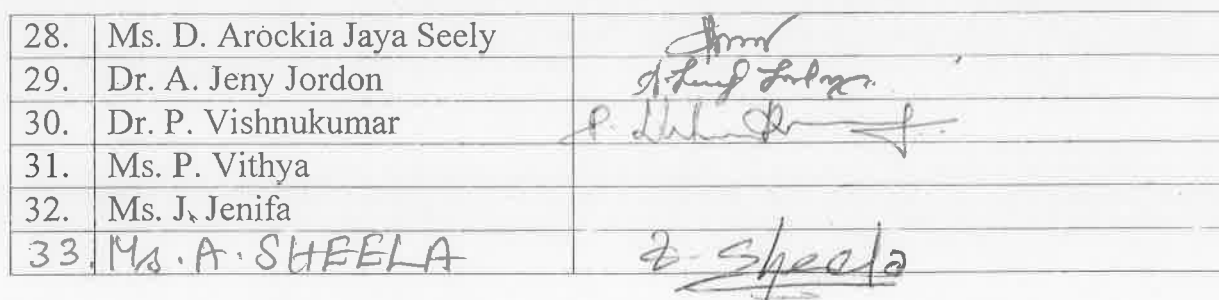 28. Ms. D. Arockia Jaya Seely
29. Dr. A. Jeny Jordon
30. Dr. P. Vishnukumar
31. Ms. P. Vithya
32. Ms. J. Jenifa
33. Ms. A. SHEELA Sheela